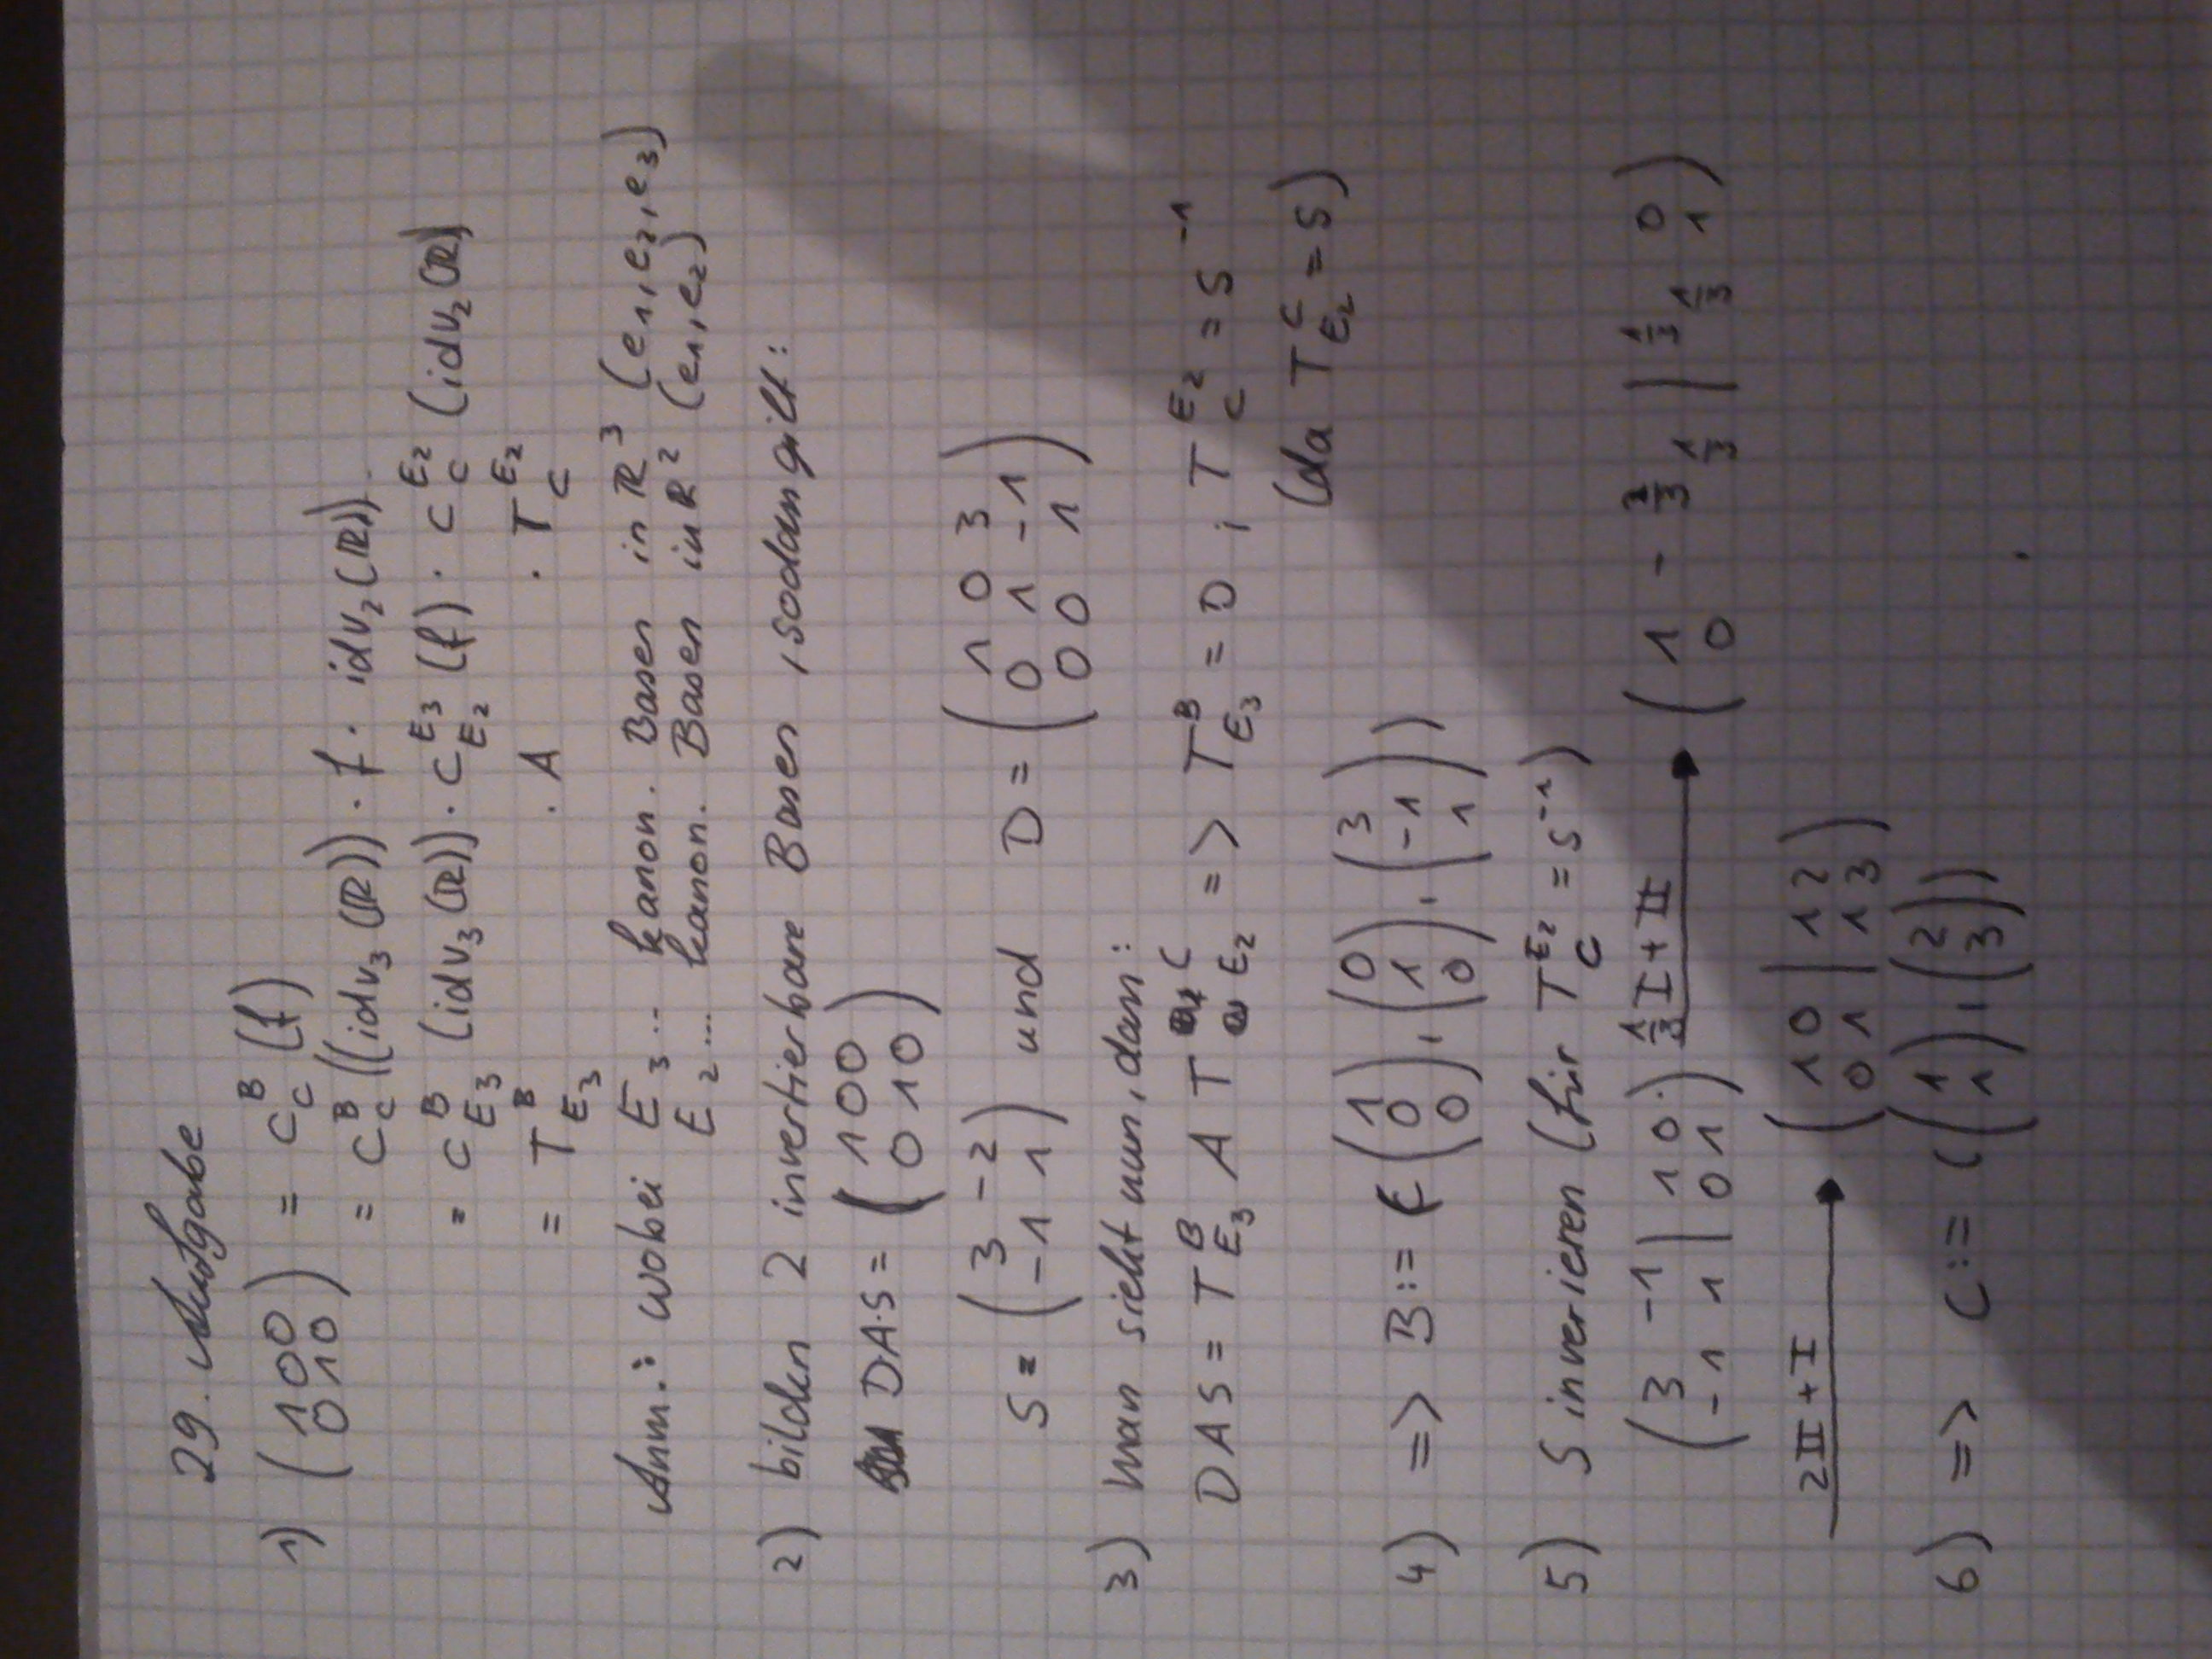 29. Aufgabe
1) (1 0 0 / 0 1 0) = C^B_C (f)
= C^B_C ((idv₃(ℝ)) · f · idv₂(ℝ))
= C^B_E₃ (idv₃(ℝ)) · C^E₃_E₂ (f) · C^E₂_C (idv₂(ℝ))
= T^B_E₃ · A · T^E₂_C
Anm.: wobei E₃... kanon. Basen in ℝ³ (e₁,e₂,e₃)
E₂... kanon. Basen in ℝ² (e₁,e₂)
2) bilden 2 invertierbare Basen, sodann gilt:
DA·S = (1 0 0 / 0 1 0)
S = (3 -2 / -1 1) und D = (1 0 3 / 0 1 -1 / 0 0 1)
3) man sieht nun, dann:
DAS = T^B_E₃ A T^C_E₂ => T^B_E₃ = D ; T^E₂_C = S⁻¹
(da T^C_E₂ = S)
4) => B := ((1 / 0 / 0), (0 / 1 / 0), (3 / -1 / 1))
5) S inverieren (für T^E₂_C = S⁻¹)
(3 -1 / -1 1 | 1 0 / 0 1) ⅓I + II → (1 -⅔ / 0 ⅓ | ⅓ 0 / ⅓ 1)
2II + I → (1 0 / 0 1 | 1 2 / 1 3)
6) => C := ((1 / 1), (2 / 3))